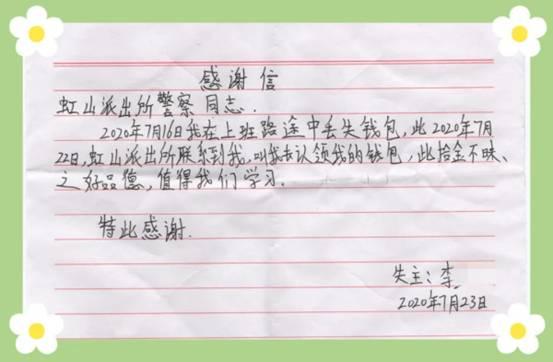 感谢信
虹山派出所警察同志.
2020年7月16日我在上班路途中丢失钱包,此2020年7月
22日,虹山派出所联系到我,叫我去认领我的钱包,此拾金不昧、
之好品德,值得我们学习.
特此感谢.
失主:李
2020年7月23日